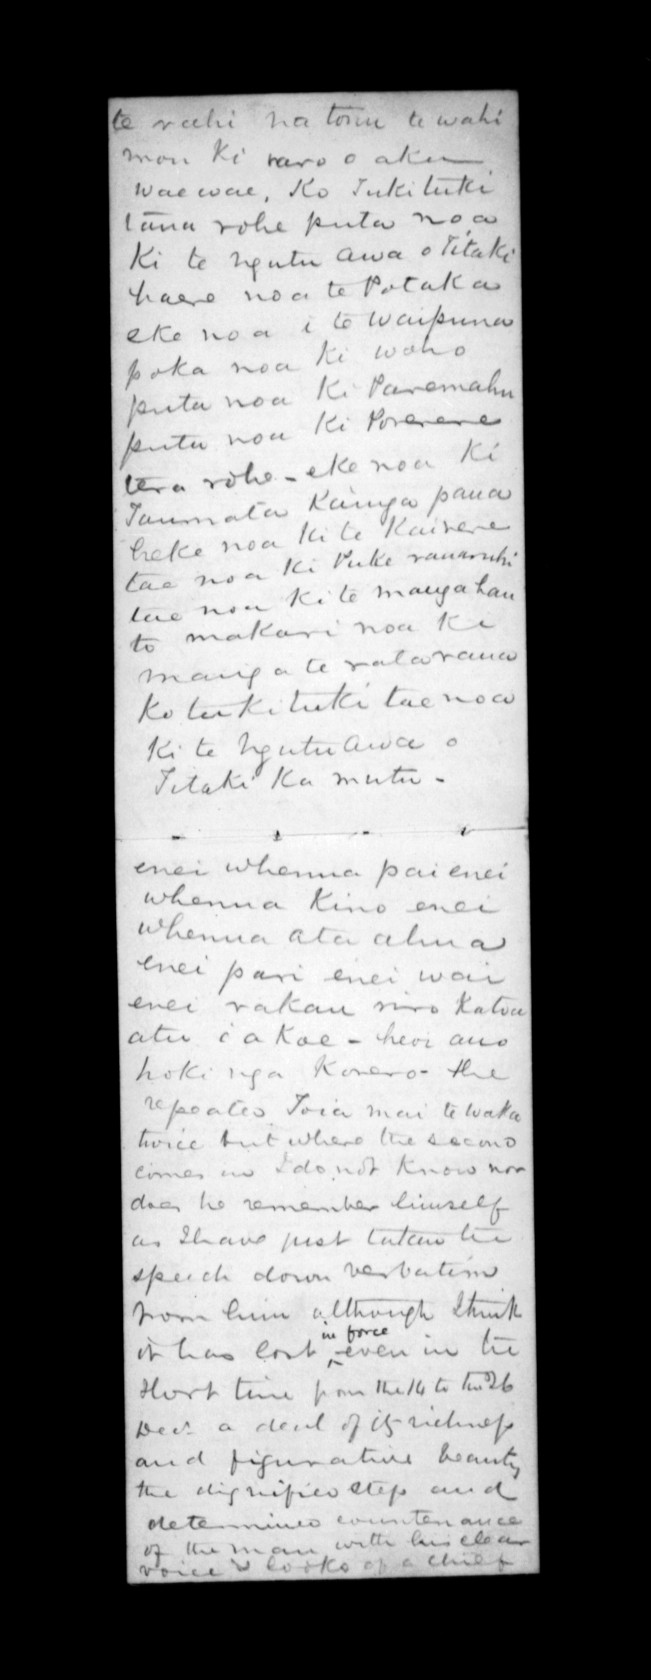 te rahi na tonu te wahi
mou ki raro o aku
waewae, Ko Tukituki
tana rohe puta noa
Ki te Ngutu awa o Titaki
haere noa te Potaka
eke noa i te Waipuna
poka noa Ki waho
puta noa Ki Paremahu
puta noa Ki Porerere
tera rohe - eke noa Ki
Taumata Kainga paua
heke noa Ki te Kairere
tae noa Ki Puke
tae noa Ki te mangahau
to makari noa Ki
manga te rataraua
Ko tukituki tae noa
Ki te Ngutuawa o
Titaki Ka mutu -
enei whenua pai enei
whenua Kino enei
whenua ata ahua
enei pari enei wai
enei rakau riro Katoa
atu i a Koe - heoi ano
hoki nga Korero - the
repeates Toia mai te waka
twice but where the second
comes in I do not Know nor
does he remember himself
as I have just taken the
speech down verbatim
from him although I think
it has lost in force even in the
Short time from the 14 to the 26
Decr. a deal of its richness
and figurative beauty
the dignified step and
determined countenance
of the man with his clear
voice & looks of a chief